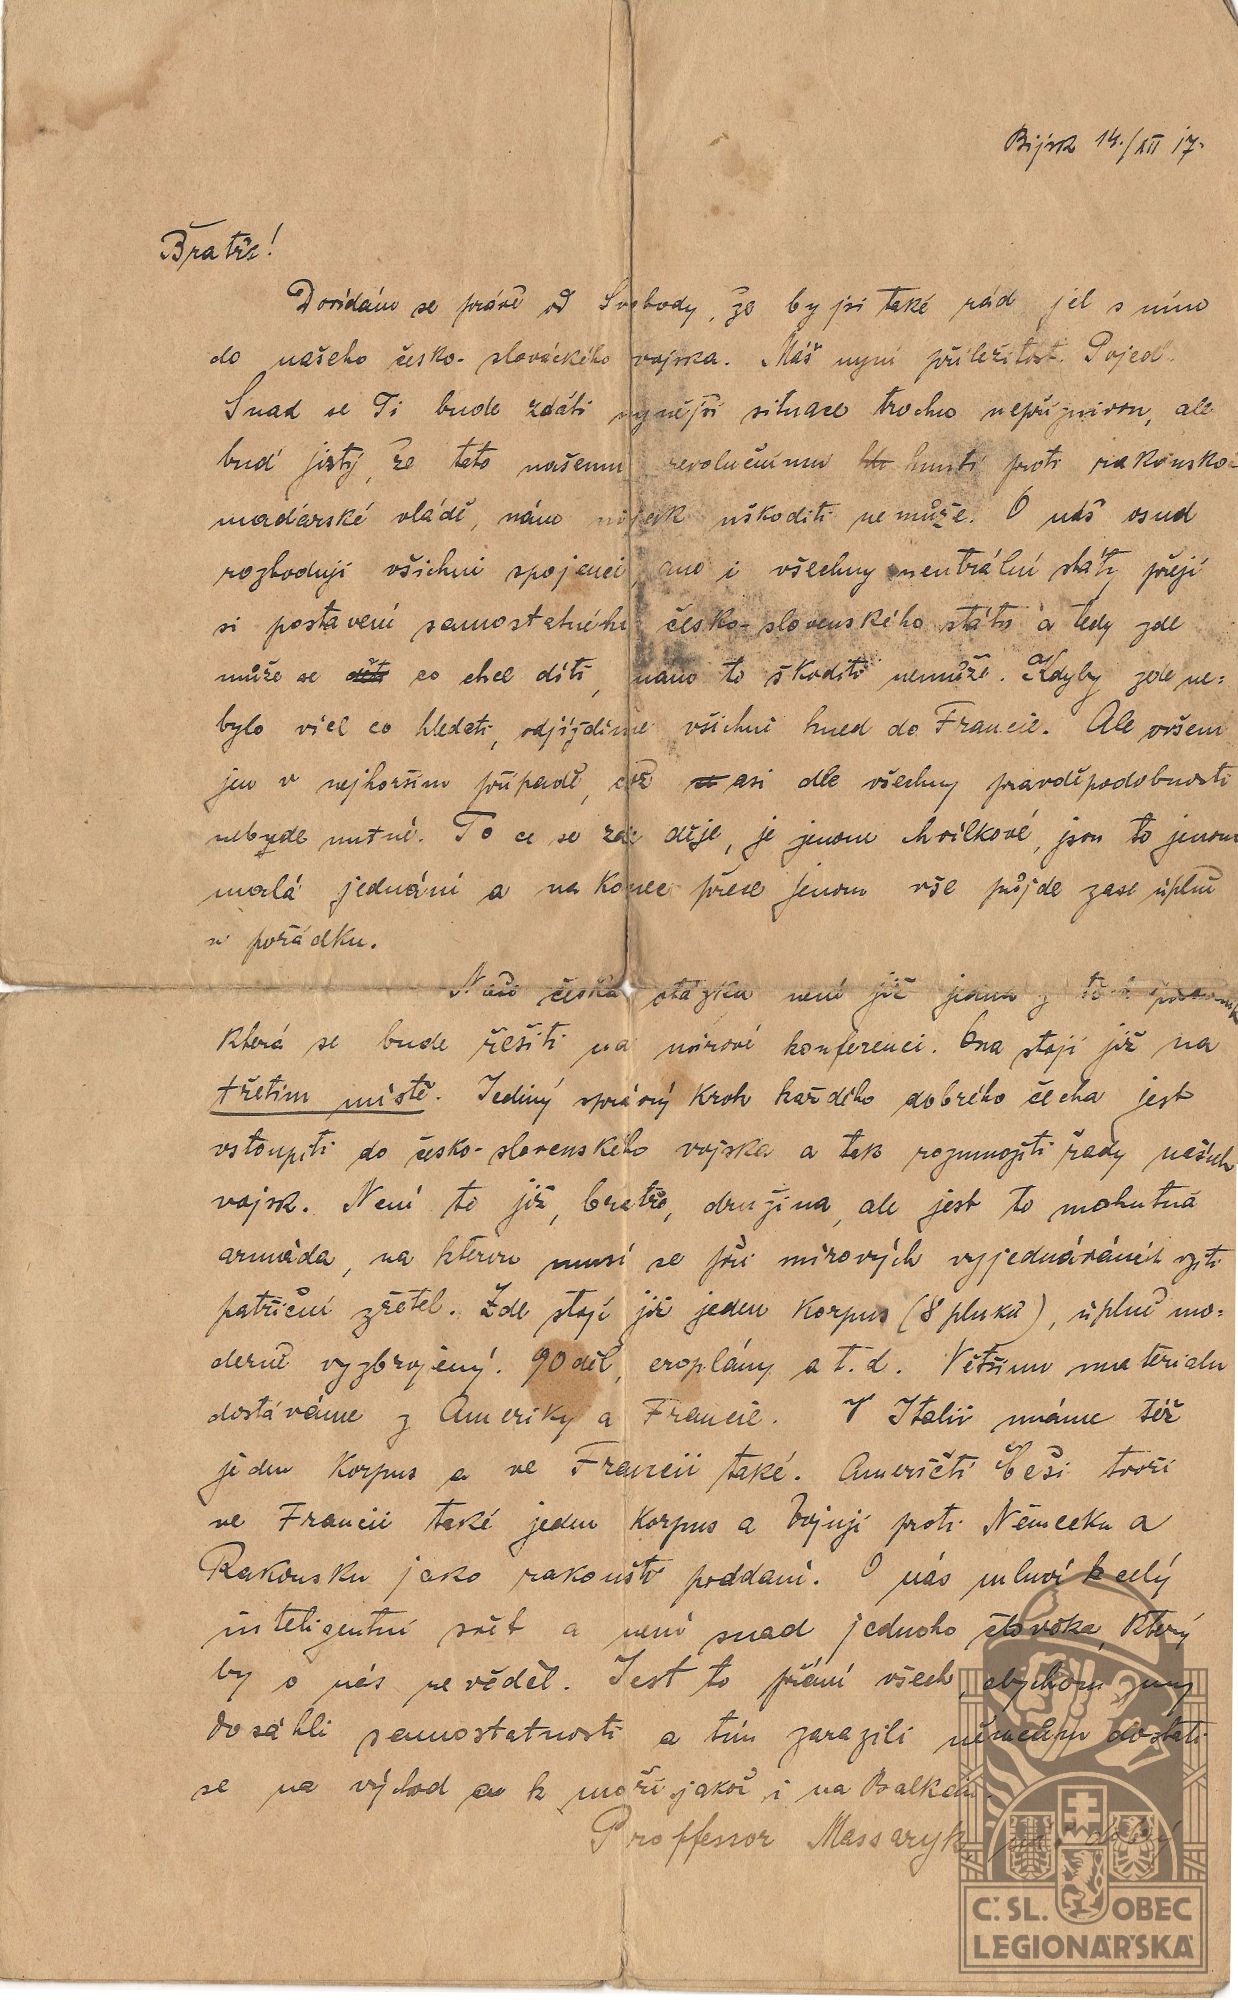 Bijsk 14./XII 17.
Bratře!
Dovídám se právě od Svobody, že by jsi také rád jel s ním
do našeho česko-slováckého vojska. Máš nyní příležitost. Pojeď.
Snad se Ti bude zdáti nynější situace trochu nepříznivou, ale
buď jistý, že tato našemu revolučnímu hnutí proti rakousko-
maďarské vládě, nám nijak uškoditi nemůže. O náš osud
rozhodují všichni spojenci, ano i všechny neutrální státy přejí
si postavení samostatného česko-slovenského státu a tedy zde
může se co chce díti, nám to škoditi nemůže. Kdyby zde ne-
bylo víc co hledati, odjíždíme všichni hned do Francie. Ale ovšem
jen v nejhorším případě, což asi dle všechny pravděpodobnosti
nebude nutné. To co se zde děje, je jenom chvilkové, jsou to jenom
malá jednání a na konec přece jenom vše půjde zase úplně
v pořádku.
Naše česká otázka není již jedna z těch
která se bude řešiti na mírové konferenci. Ona stojí již na
třetím místě. Jediný správný krok každého dobrého čecha jest
vstoupiti do česko-slovenského vojska a tak rozmnožiti řady našich
vojsk. Není to již, bratře, družina, ale jest to mohutná
armáda, na kterou musí se při mírových vyjednáváních vzíti
patřiční zřetel. Zde stojí již jeden Korpus (8 pluků), úplně mo-
derně vyzbrojený. 90 děl, eroplány a t. d. Většinu materialu
dostáváme z Ameriky a Francie. V Italii máme též
jeden Korpus a ve Francii také. Američtí Češi tvoří
ve Francii také jeden Korpus a bojují proti Německu a
Rakousku jako rakouští poddaní. O nás mluví celý
inteligentní svět a není snad jednoho člověka, který
by o nás nevěděl. Jest to přání všech, abychom my
dosáhli samostatnosti a tím zarazili němcům dostati
se na východ k moři jakož i na Balkán.
Proffessor Massaryk, náš
Č. SL. OBEC
LEGIONÁŘSKÁ